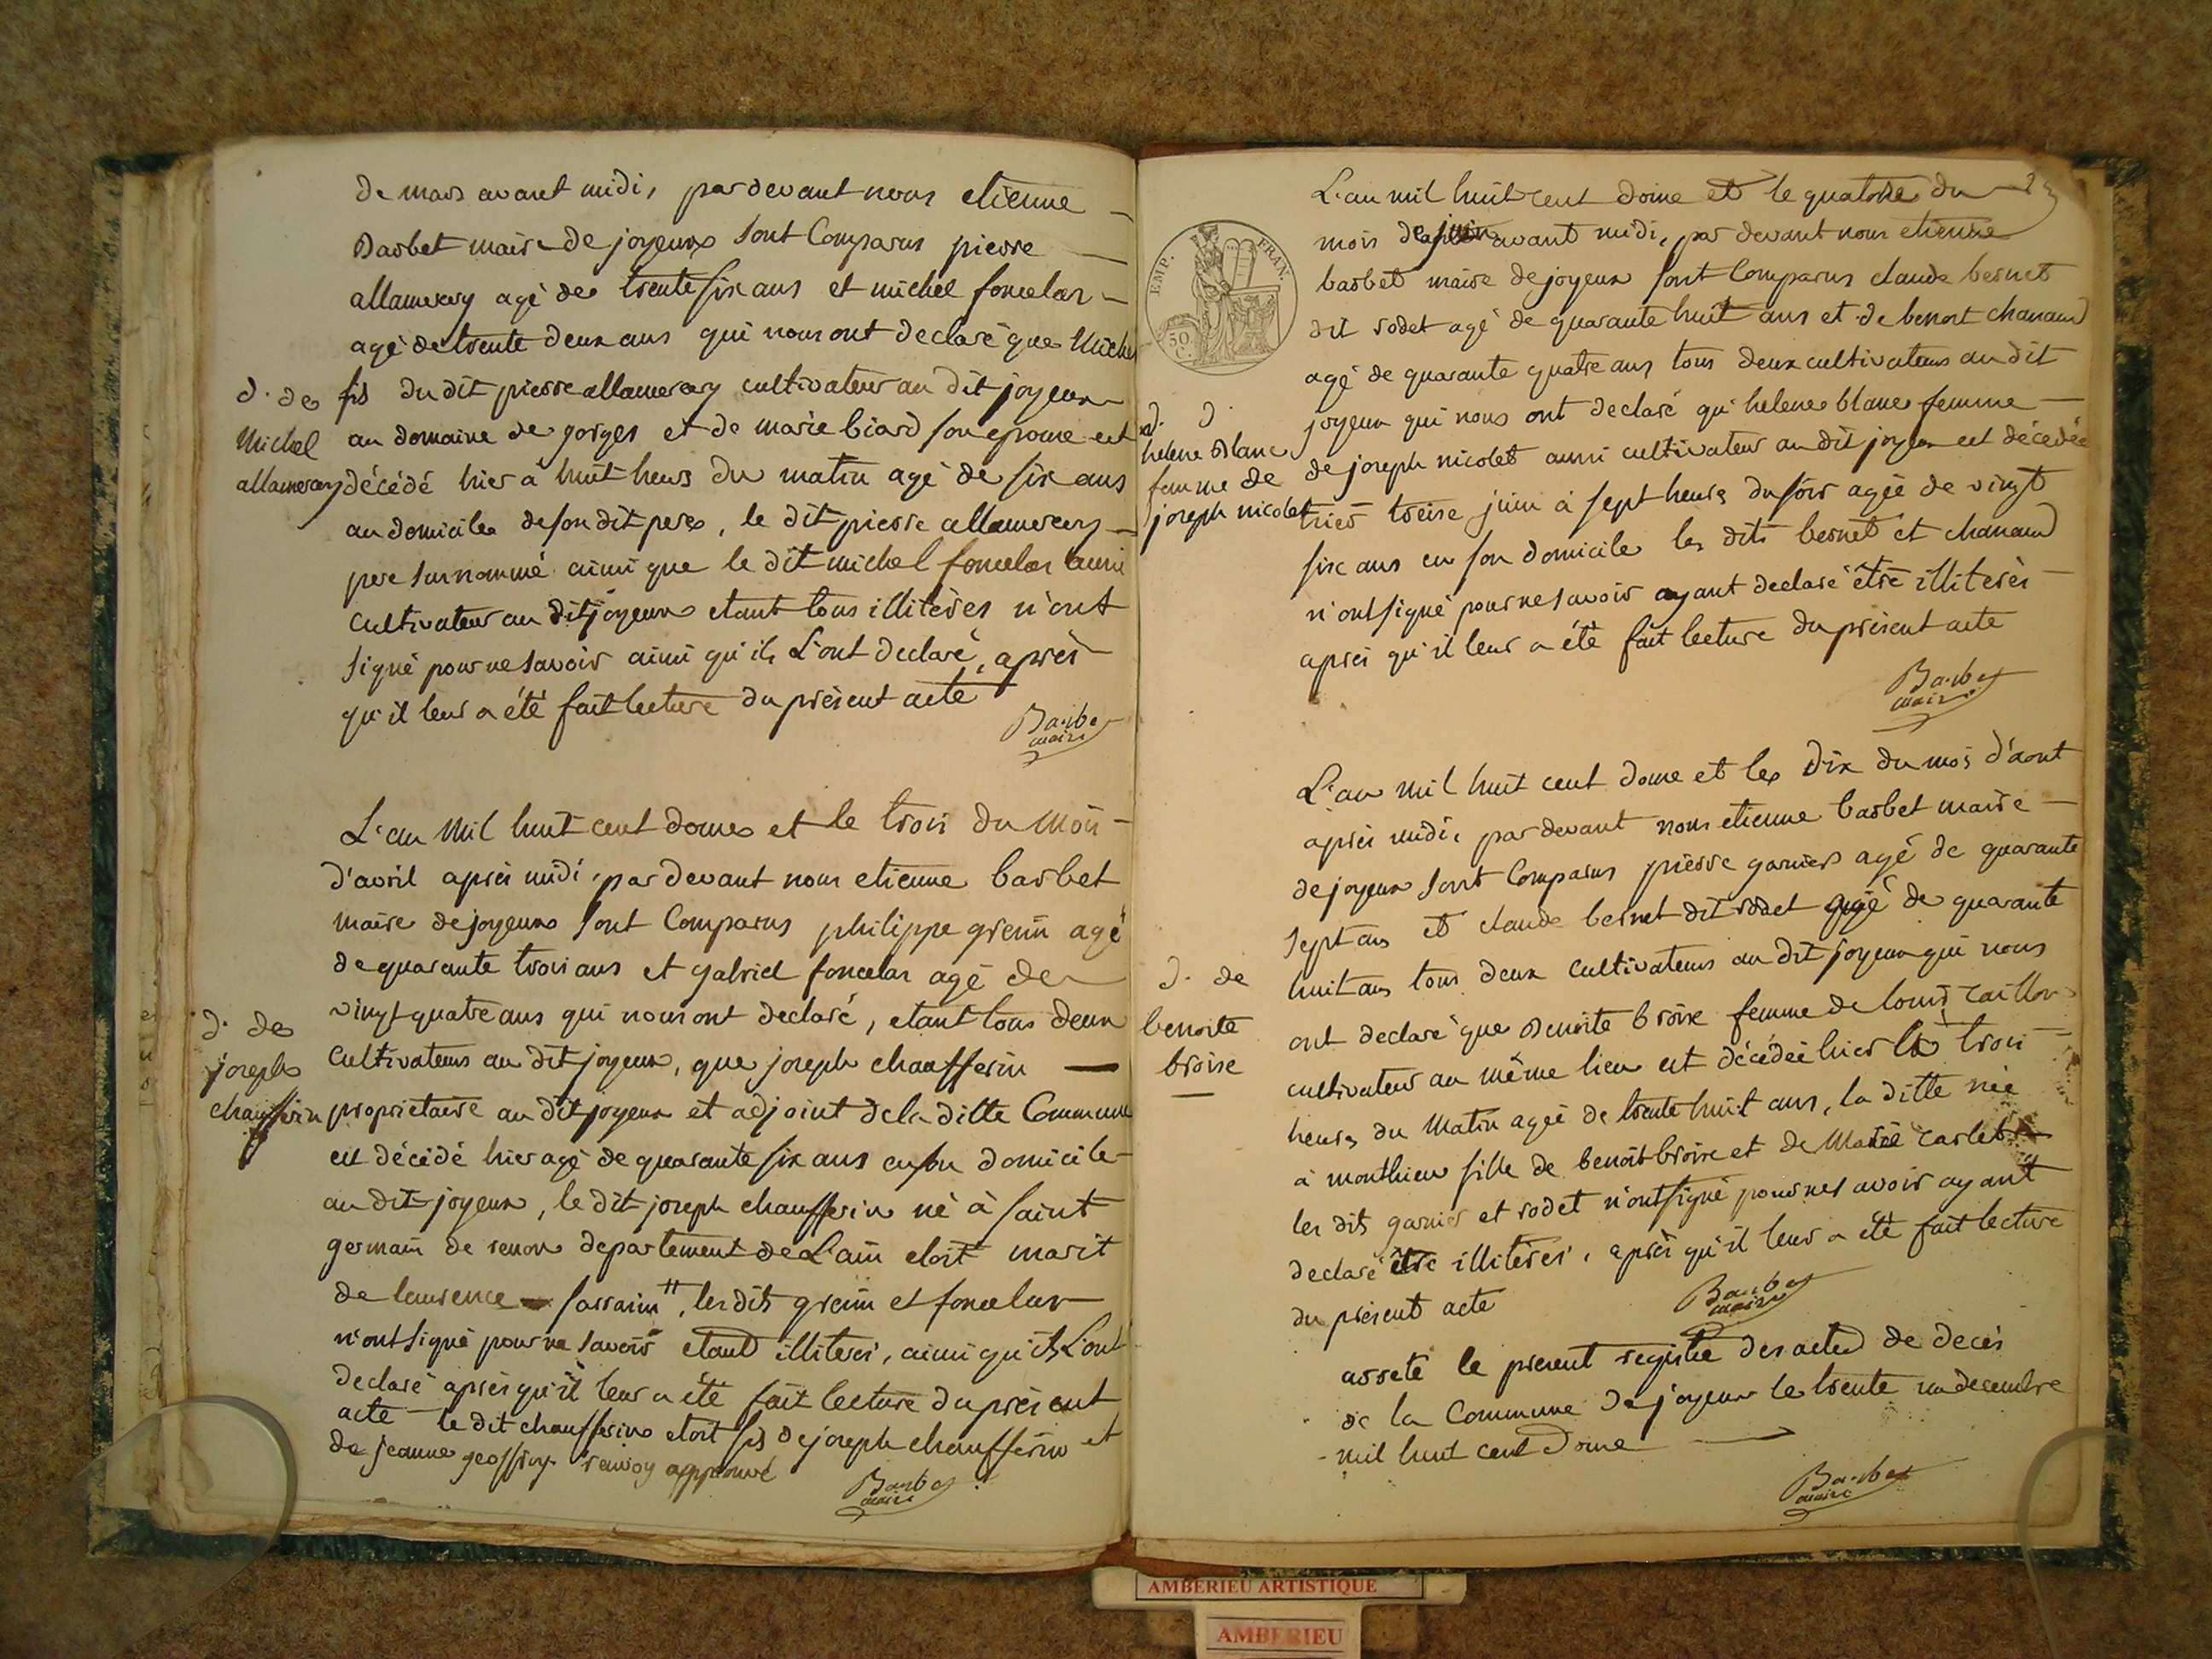 de mars avant midi, par devant nous etienne
Barbet maire de joyeux sont Comparus pierre
allamercery agé de trente six ans et michel foncelas
agé de trente deux ans qui nous ont declaré que Michel
fils du dit pierre allamercery cultivateur au dit joyeux
au domaine de gorges et de marie biard son epouse est
décédé hier à huit heurs du matin agé de six ans
au domicile de son dit pere, le dit pierre allamercery
pere surnommé ainsi que le dit michel foncelas aussi
cultivateur au dit joyeux etant tous illitères n'ont
signé pour ne savoir ainsi qu'ils L'ont declaré, après
qu'il leur a été fait lecture du présent acte
Barbet
maire
d. de
Michel
allamercery
L'an Mil huit cent douze et le trois du Mois
d'avril après midi, par devant nous etienne barbet
maire de joyeux sont Comparus philippe grenin agé
de quarante trois ans et gabriel foncelas agé de
vingt quatre ans qui nous ont declaré, etant tous deux
Cultivateurs au dit joyeux, que joseph chaufferin
proprietaire au dit joyeux et adjoint de la ditte Commune
est décédé hier agé de quarante six ans en son domicile
au dit joyeux, le dit joseph chaufferin né à saint
germain de renon departement de L'ain etoit marit
de laurence sarrasin #, les dits grenin et foncelas
n'ont signé pour ne savoir etant illiterés, ainsi qu'ils L'ont
declaré après qu'il leur a été fait lecture du présent
acte le dit chaufferin etoit fils de joseph chaufferin et
de jeanne geoffroy renvoy approuvé
Barbet
maire
d. de
joseph
chaufferin
L'an mil huit cent douze et le quatorze du
mois de juin avant midi, par devant nous etienne
barbet maire de joyeux sont Comparus claude bernet
dit rodet agé de quarante huit ans et de benoit chanaud
agé de quarante quatre ans tous deux cultivateurs au dit
joyeux qui nous ont declaré qu'helene blanc femme
de joseph nicolet aussi cultivateur au dit joyeux est décédée
hier treize juin à sept heures du soir agée de vingt
six ans en son domicile les dits bernet et chanaud
n'ont signé pour ne savoir ayant declaré être illiterés
après qu'il leur a été fait lecture du présent acte
Barbet
maire
EMP. FRAN.
50
C.
d. d
helene Blanc
femme de
joseph nicolet
L'an mil huit cent douze et le dix du mois d'aout
après midi, par devant nous etienne barbet maire
de joyeux sont Comparus pierre garnier agé de quarante
sept ans et claude bernet dit rodet agé de quarante
huit ans tous deux cultivateurs au dit joyeux qui nous
ont declaré que Benoite broise femme de louis caillon
cultivateur au même lieu est décédée hier à trois
heures du Matin agée de trente huit ans, la ditte née
à monthieu fille de benoit broise et de Marie carlet
les dits garnier et rodet n'ont signé pour ne savoir ayant
declaré être illiterés, après qu'il leur a été fait lecture
du présent acte
Barbet
maire
d. de
benoite
broise
arreté le present registre des actes de decès
de la Commune de joyeux le trente un decembre
mil huit cent douze
Barbet
maire
AMBERIEU ARTISTIQUE
AMBERIEU